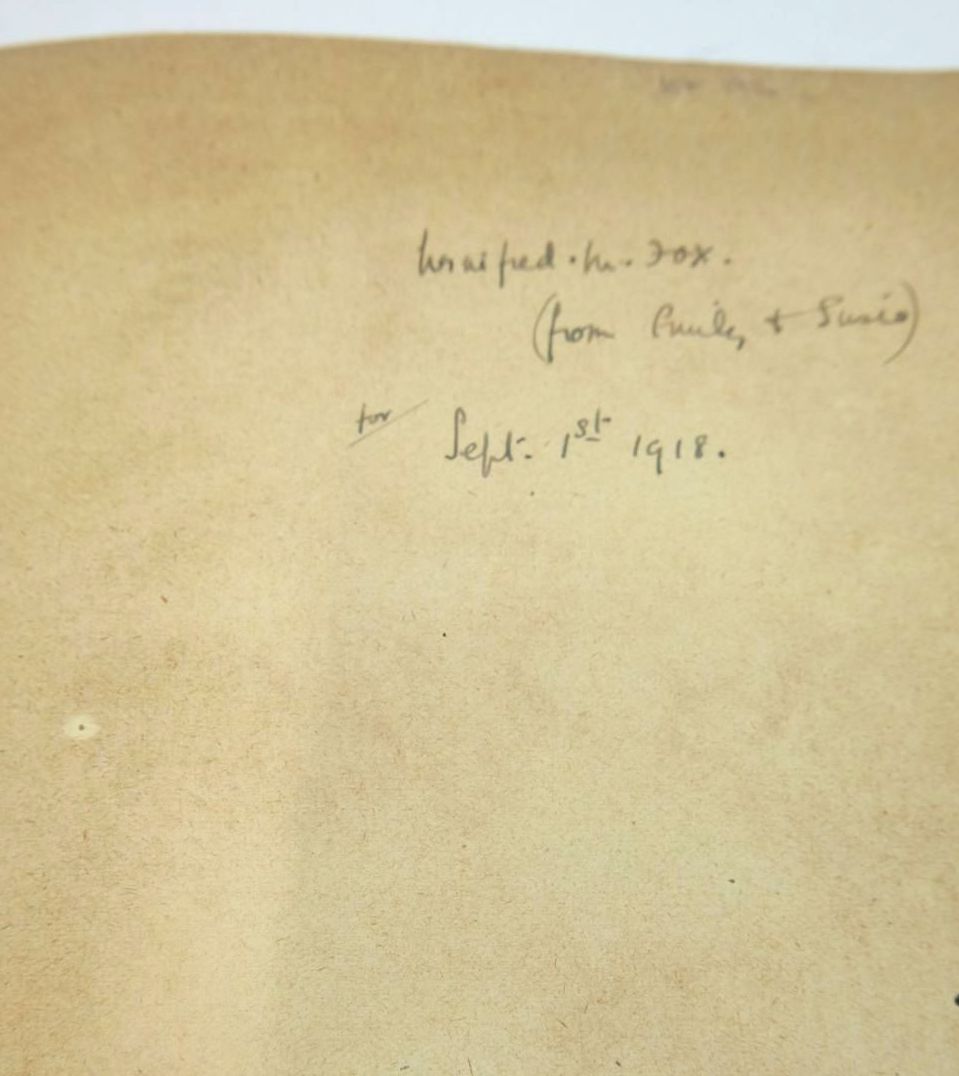 Winifred. M. Fox.
(from Emily & Susie)
for Sept. 1st 1918.